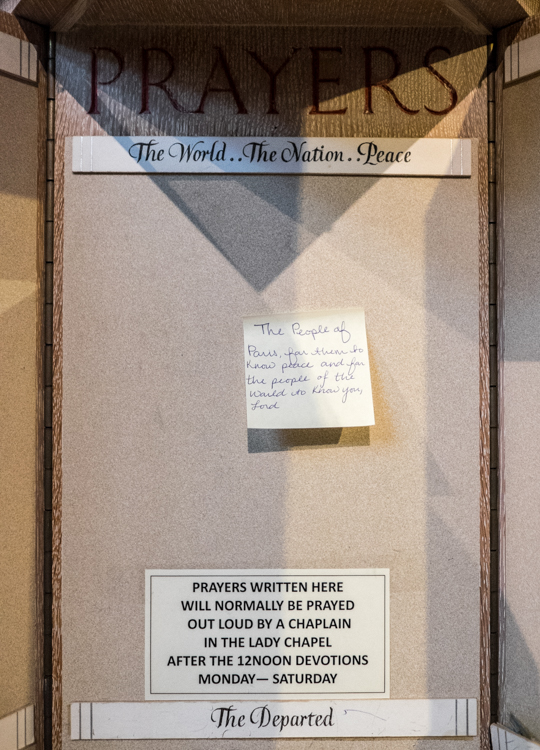 PRAYERS
The World..The Nation..Peace
The People of
Paris, for them to
know peace and for
the people of the
World to know you,
Lord
PRAYERS WRITTEN HERE
WILL NORMALLY BE PRAYED
OUT LOUD BY A CHAPLAIN
IN THE LADY CHAPEL
AFTER THE 12NOON DEVOTIONS
MONDAY— SATURDAY
The Departed